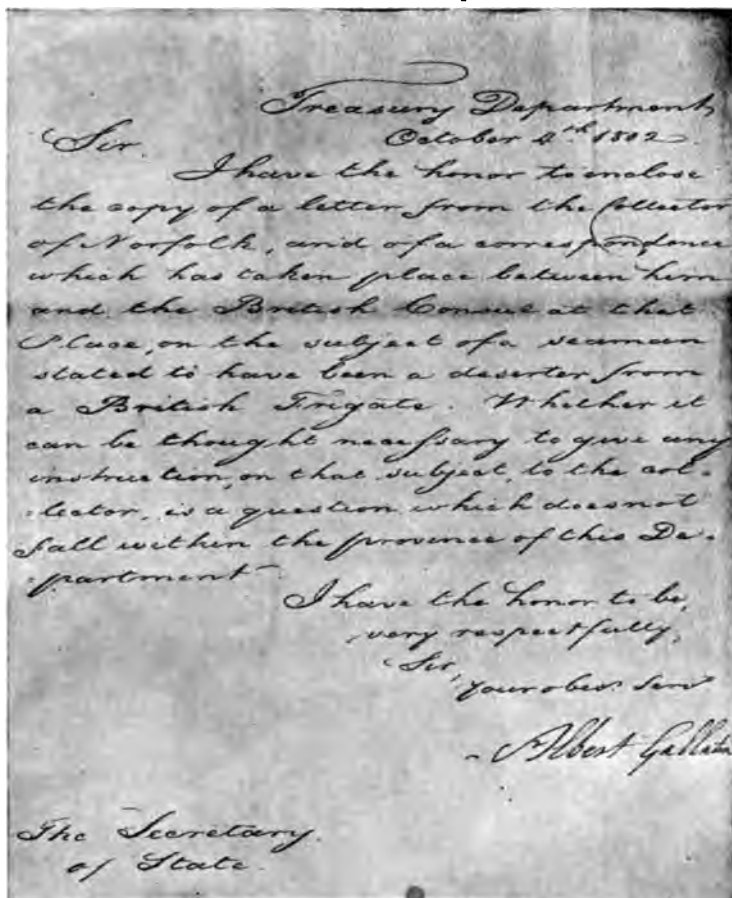 Treasury Department,
October 4th 1802
Sir.
I have the honor to enclose
the copy of a letter from the Collector
of Norfolk, and of a correspondence
which has taken place between him
and the British Consul at that
Place, on the subject of a seaman
stated to have been a deserter from
a British Frigate. Whether it
can be thought necessary to give any
instruction, on that subject, to the col-
-lector, is a question which does not
fall within the province of this De-
-partment
I have the honor to be,
very respectfully,
Sir,
your obed. Serv
Albert Gallatin
The Secretary
of State.